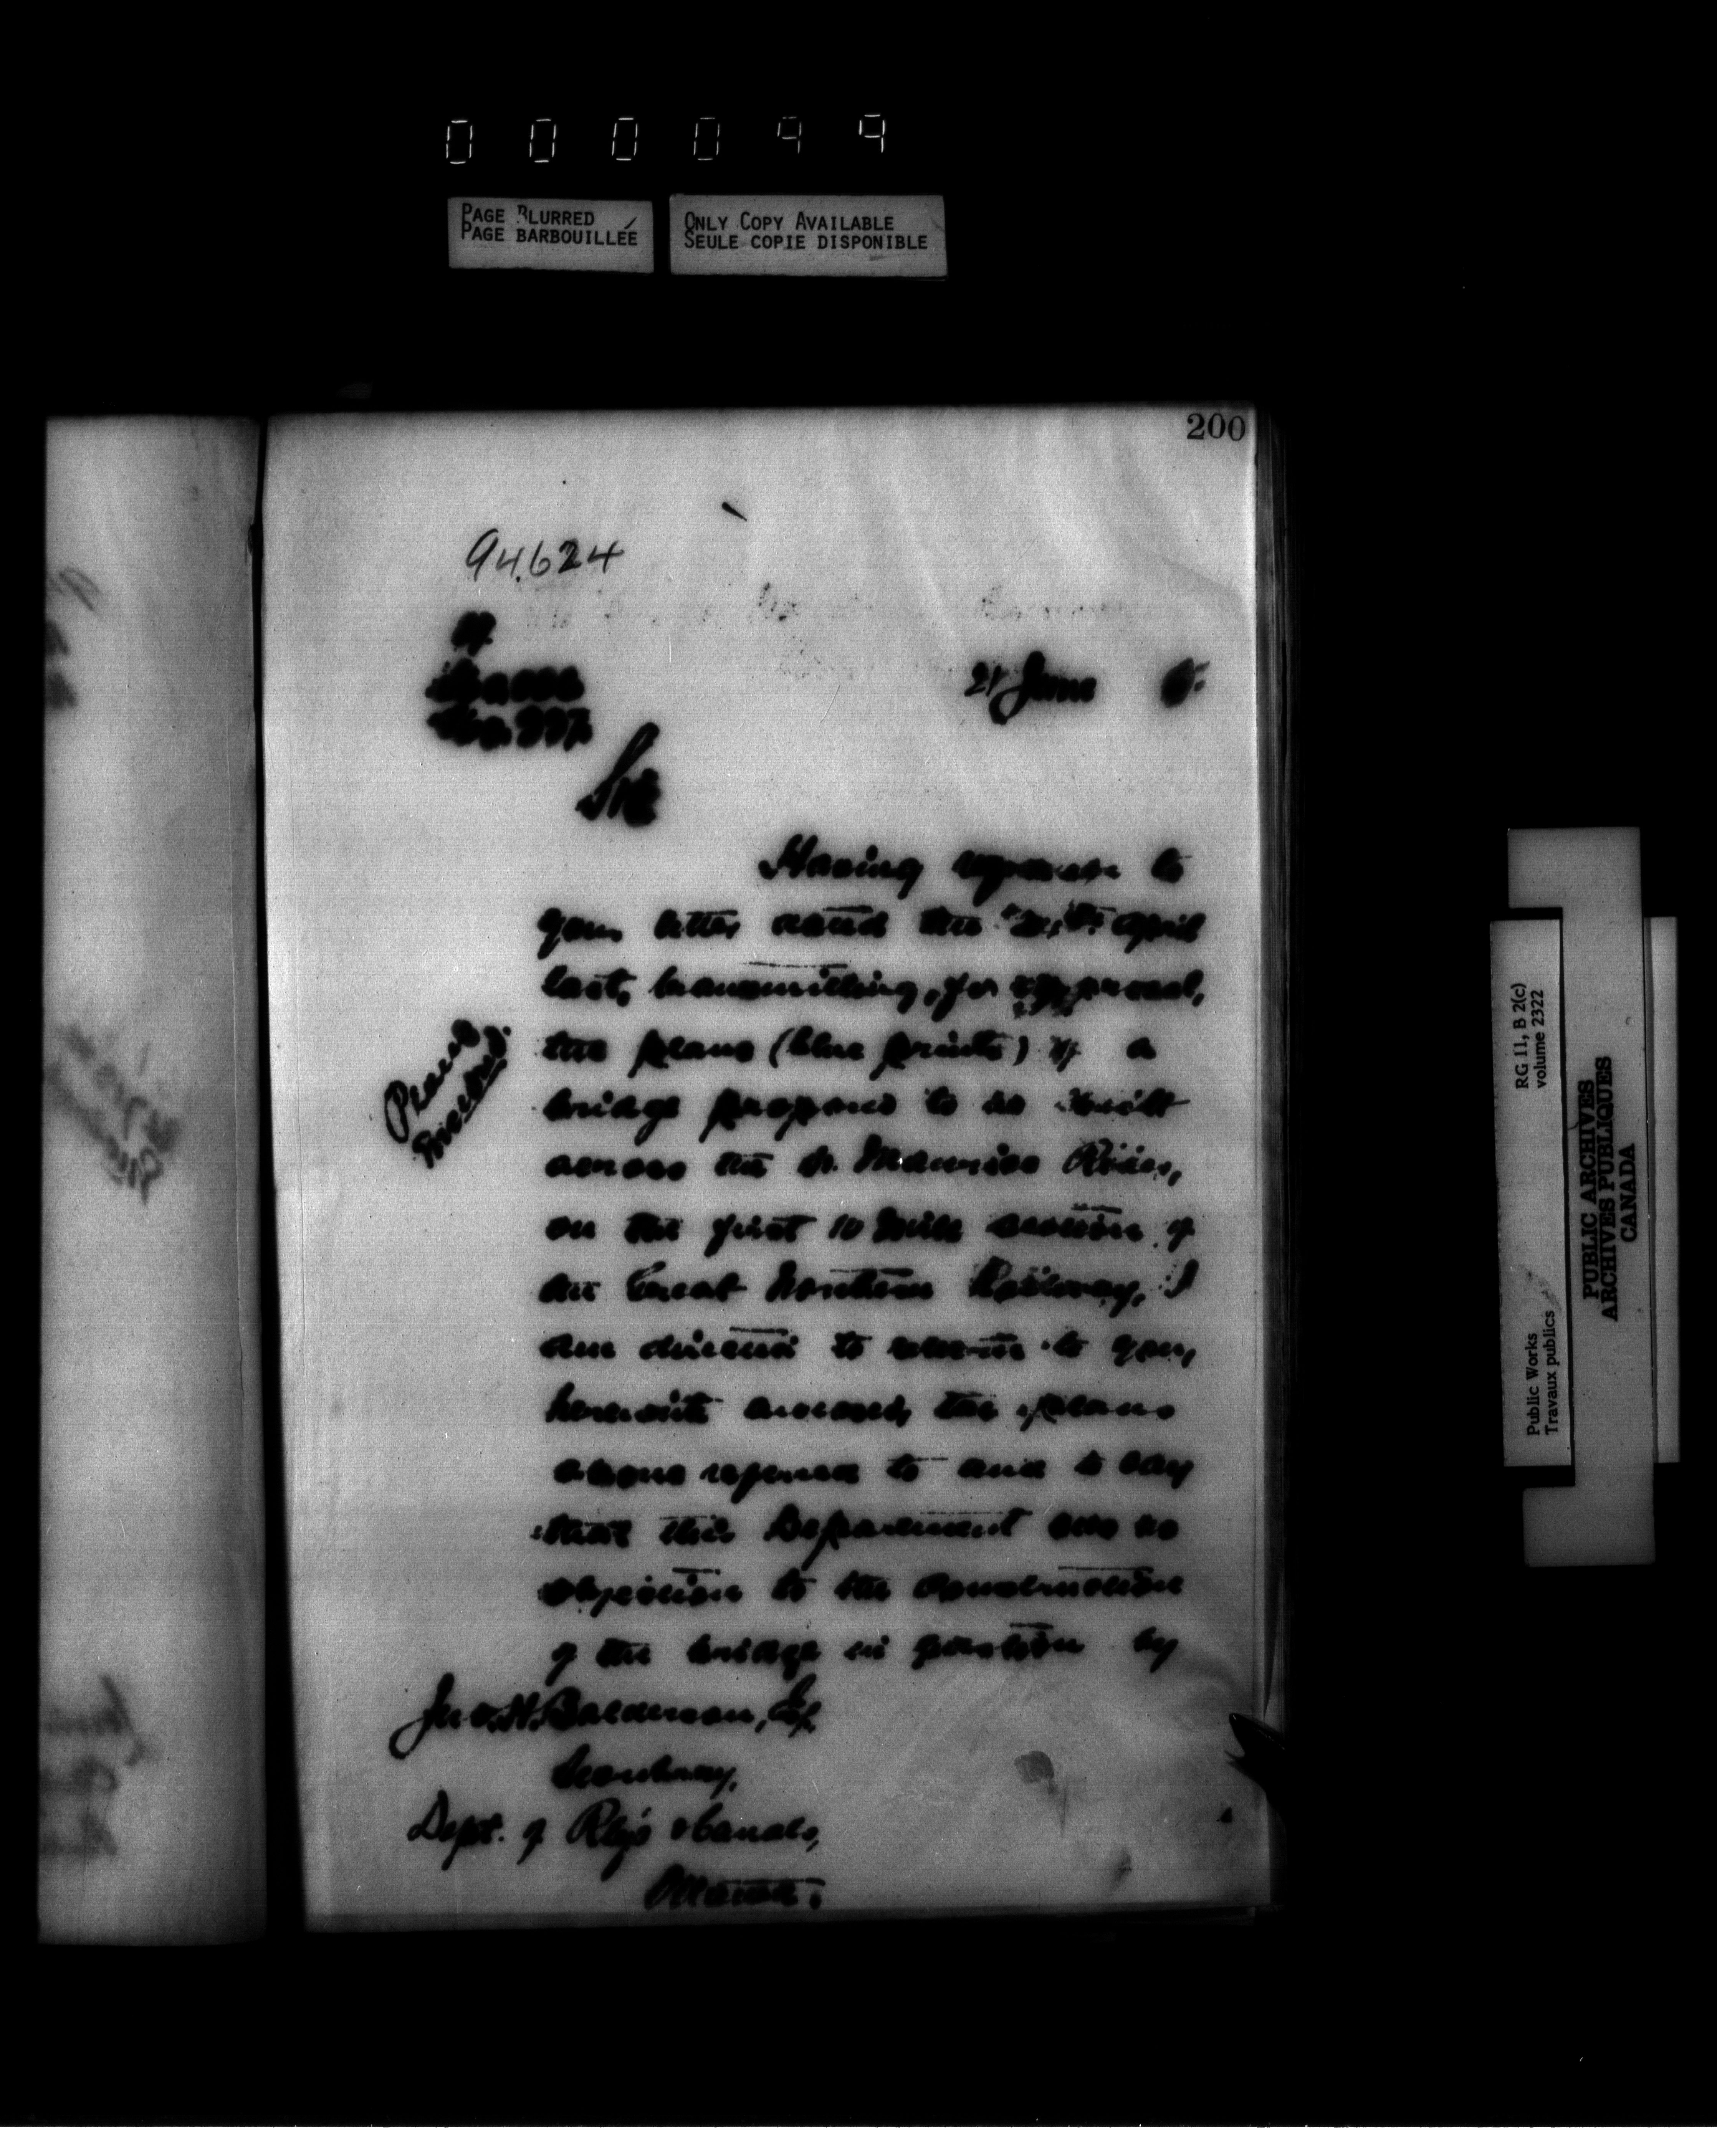 000099
PAGE BLURRED
PAGE BARBOUILLÉE
ONLY COPY AVAILABLE
SEULE COPIE DISPONIBLE
200
94.624
21 June
Sir
Having reference to
your letter dated the April
last, transmitting, for approval,
the plans (blue prints) of a
bridge proposed to be built
across the St. Maurice River,
on the first 10 Mile section of
the Great Northern Railway, I
am directed to return to you,
herewith annexed, the plans
above referred to and to say
that this Department sees no
objection to the construction
of the bridge in question by
Plans
Enclosed.
Jno. H. Balderson, Esq.
Secretary,
Dept. of Rlys & Canals,
Ottawa.
RG 11, B 2(c)
volume 2322
Public Works
Travaux publics
PUBLIC ARCHIVES
ARCHIVES PUBLIQUES
CANADA